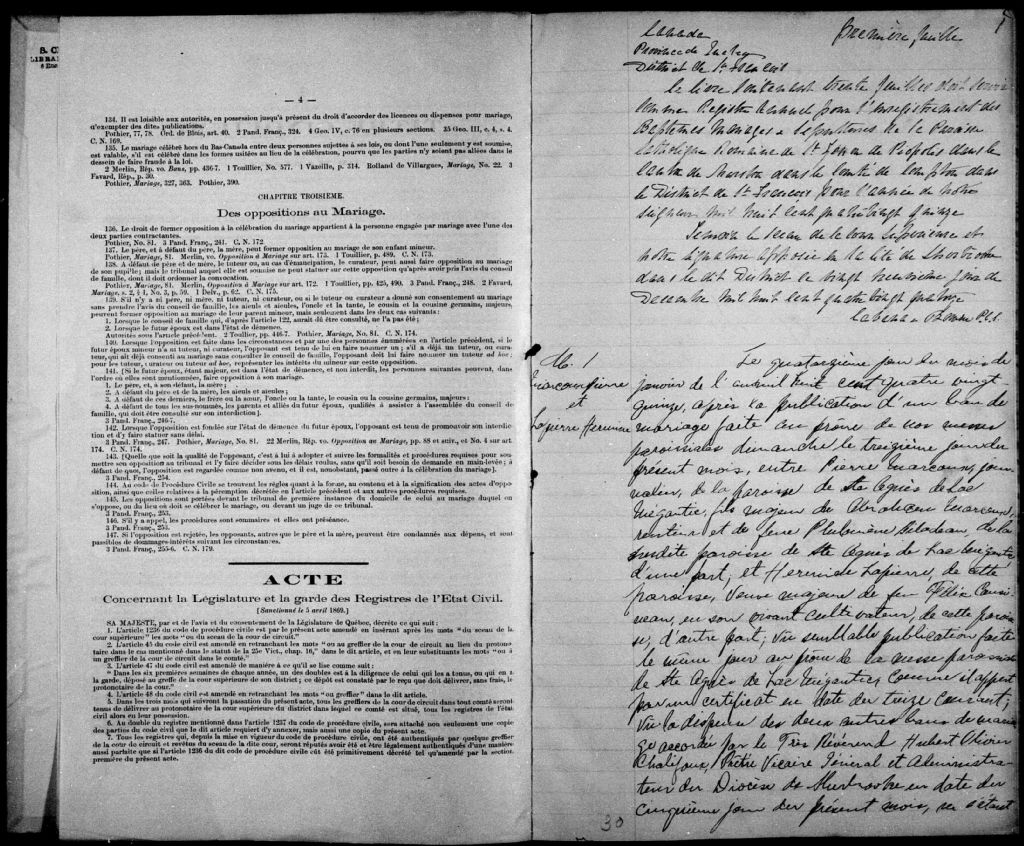 S. C
LIBRA
— 4 —
134. Il est loisible aux autorités, en possession jusqu'à présent du droit d'accorder des licences ou dispenses pour mariage,
d'exempter des dites publications.
Pothier, 77, 78. Ord. de Blois, art. 40. 2 Pand. Franç., 324. 4 Geo. IV, c. 76 en plusieurs sections. 35 Geo. III, c. 4, s. 4.
C. N. 169.
135. Le mariage célébré hors du Bas-Canada entre deux personnes sujettes à ses lois, ou dont l'une seulement y est soumise,
est valable, s'il est célébré dans les formes usitées au lieu de la célébration, pourvu que les parties n'y soient pas allées dans le
dessein de faire fraude à la loi.
2 Merlin, Rép. vo. Bans, pp. 436-7. 1 Touillier, No. 577. 1 Vazeille, p. 314. Rolland de Villargues, Mariage, No. 22. 3
Favard, Rép., p. 30.
Pothier, Mariage, 327, 363. Pothier, 390.
CHAPITRE TROISIEME.
Des oppositions au Mariage.
136. Le droit de former opposition à la célébration du mariage appartient à la personne engagée par mariage avec l'une des
deux parties contractantes.
Pothier, No. 81. 3 Pand. Franç., 241. C. N. 172.
137. Le père, et à défaut du père, la mère, peut former opposition au mariage de son enfant mineur.
Pothier, Mariage, 81. Merlin, vo. Opposition à Mariage sur art. 173. 1 Touillier, p. 489. C. N. 173.
138. A défaut de père et de mère, le tuteur ou, au cas d'émancipation, le curateur, peut aussi faire opposition au mariage
de son pupille; mais le tribunal auquel elle est soumise ne peut statuer sur cette opposition qu'après avoir pris l'avis du conseil
de famille, dont il doit ordonner la convocation.
Pothier, Mariage, 81. Merlin, Opposition à Mariage sur art. 172. 1 Touillier, pp. 425, 490. 3 Pand. Franç., 248. 2 Favard,
Mariage, s. 2, § 1, No. 3, p. 59. 1 Delv., p. 62. C. N. 175.
139. S'il n'y a ni père, ni mère, ni tuteur, ni curateur, ou si le tuteur ou curateur a donné son consentement au mariage
sans prendre l'avis du conseil de famille, les aïeuls et aïeules, l'oncle et la tante, le cousin et la cousine germains, majeurs,
peuvent former opposition au mariage de leur parent mineur, mais seulement dans les deux cas suivants:
1. Lorsque le conseil de famille qui, d'après l'article 122, aurait dû être consulté, ne l'a pas été;
2. Lorsque le futur époux est dans l'état de démence.
Autorités sous l'article précédent. 2 Touillier, pp. 446-7. Pothier, Mariage, No. 81. C. N. 174.
140. Lorsque l'opposition est faite dans les circonstances et par une des personnes énumérées en l'article précédent, si le
futur époux mineur n'a ni tuteur, ni curateur, l'opposant est tenu de lui en faire nommer un; s'il a déjà un tuteur, ou cura-
teur, qui ait déjà consenti au mariage sans consulter le conseil de famille, l'opposant doit lui faire nommer un tuteur ad hoc;
pour les tuteur, curateur ou tuteur ad hoc, représenter les intérêts du mineur sur cette opposition.
141. [Si le futur époux, étant majeur, est dans l'état de démence, et non interdit, les personnes suivantes peuvent, dans
l'ordre où elles sont mentionnées, faire opposition à son mariage.
1. Le père, et, à son défaut, la mère;
2. A défaut du père et de la mère, les aïeuls et aïeules;
3. A défaut de ces derniers, le frère ou la sœur, l'oncle ou la tante, le cousin ou la cousine germains, majeurs;
4. A défaut de tous les sus-nommés, les parents et alliés du futur époux, qualifiés à assister à l'assemblée du conseil de
famille, qui doit être consulté sur son interdiction].
3 Pand. Franç., 246-7.
142. Lorsque l'opposition est fondée sur l'état de démence du futur époux, l'opposant est tenu de promouvoir son interdic-
tion et d'y faire statuer sans délai.
3 Pand. Franç., 247. Pothier, Mariage, No. 81. 22 Merlin, Rép. vo. Opposition au Mariage, pp. 88 et suiv., et No. 4 sur art.
174. C. N. 174.
143. [Quelle que soit la qualité de l'opposant, c'est à lui à adopter et suivre les formalités et procédures requises pour sou-
mettre son opposition au tribunal et l'y faire décider sous les délais voulus, sans qu'il soit besoin de demande en main-levée; à
défaut de quoi, l'opposition est regardée comme non avenu, et il est, nonobstant, passé outre à la célébration du mariage].
3 Pand. Franç., 254.
144. Au code de Procédure Civile se trouvent les règles quant à la forme, au contenu et à la signification des actes d'oppo-
sition, ainsi que celles relatives à la péremption décrétée en l'article précédent et aux autres procédures requises.
145. Les oppositions sont portées devant le tribunal de première instance du domicile de celui au mariage duquel on
s'oppose, ou du lieu où doit se célébrer le mariage, ou devant un juge de ce tribunal.
3 Pand. Franç., 253.
146. S'il y a appel, les procédures sont sommaires et elles ont préséance.
3 Pand. Franç., 253.
147. Si l'opposition est rejetée, les opposants, autres que le père et la mère, peuvent être condamnés aux dépens, et sont
passibles de dommages-intérêts suivant les circonstances.
3 Pand. Franç., 255-6. C. N. 179.
ACTE
Concernant la Législature et la garde des Registres de l'Etat Civil.
[Sanctionné le 5 avril 1869.]
SA MAJESTE, par et de l'avis et du consentement de la Législature de Québec, décrète ce qui suit:
1. L'article 1236 du code de procédure civile est par le présent acte amendé en insérant après les mots "du sceau de la
cour supérieure" les mots "ou du sceau de la cour de circuit."
2. L'article 45 du code civil est amendé en retranchant les mots "ou au greffier de la cour de circuit au lieu du protono-
taire dans le cas mentionné dans le statut de la 25e Vict., chap. 16," dans le dit article, et en leur substituants les mots "ou à
un greffier de la cour de circuit dans le comté."
3. L'article 47 du code civil est amendé de manière à ce qu'il se lise comme suit:
"Dans les six premières semaines de chaque année, un des doubles est à la diligence de celui qui les a tenus, ou qui en a
la garde, déposé au greffe de la cour supérieure de son district; ce dépôt est constaté par le reçu que doit délivrer, sans frais, le
protonotaire de la cour."
4. L'article 48 du code civil est amendé en retranchant les mots "ou greffier" dans le dit article.
5. Dans les trois mois qui suivront la passation du présent acte, tous les greffiers de la cour de circuit dans tout comté seront
tenus de délivrer au protonotaire de la cour supérieure du district dans lequel ce comté est situé, tous les registres de l'état
civil alors en leur possession.
6. Au double du registre mentionné dans l'article 1237 du code de procédure civile, sera attaché non seulement une copie
des parties du code civil que le dit article requiert d'y annexer, mais aussi une copie du présent acte.
7. Tous les registres qui, depuis la mise en vigueur du code de procédure civile, ont été authentiqués par quelque greffier
de la cour de circuit et revêtus du sceau de la dite cour, seront réputés avoir été et être légalement authentiqués d'une manière
aussi parfaite que si l'article 1236 du dit code de procédure civile eût été primitivement décrété tel qu'amendé par la section
première du présent acte.
1
Première feuille
Canada
Province de Québec
District de St François
Le livre contenant trente feuilles doit servir
comme Registre Annuel pour l'enregistrement des
Baptêmes Mariages & Sépultures de la Paroisse
Catholique Romaine de St Léon de
dans le
Canton de Marston dans le Comté de Compton dans
le District de St François pour l'année de notre
Seigneur Mil huit cent quatrevingt quinze
Témoin le Sceau de la Cour Supérieure et
notre signature apposée en la Cité de Sherbrooke
dans le dit District le vingt
jour de
Décembre Mil huit cent quatre vingt quatorze
M. 1
Marcoux Pierre
et
Lapierre Herminie
Le quatorzième jour du mois de
janvier de l'an mil huit cent quatre vingt
quinze, après la publication d'un ban de
mariage faite au prône de nos messes
paroissiales dimanche le treizième jour du
présent mois, entre Pierre Marcoux, jour-
nalier, de la paroisse de Ste Agnès de Lac
Mégantic, fils majeur de
Marcoux,
rentier et de feue Philomène
de la
susdite paroisse de Ste Agnès de Lac Mégantic
d'une part; et Herminie Lapierre, de cette
paroisse, Veuve majeure de feu Félix
en son vivant cultivateur, de cette parois-
se, d'autre part; Vu semblable publication faite
le même jour au prône de la messe paroissiale
de Ste Agnès de Lac Mégantic, comme il appert
par un certificat en date du treize courant;
Vu la dispense des deux autres bans de maria-
ge accordée par le Très Révérend Hubert Olivier
Chalifoux, Prêtre Vicaire Général et Administra-
teur du Diocèse de Sherbrooke en date du
cinquième jour du présent mois, ne s'étant
30